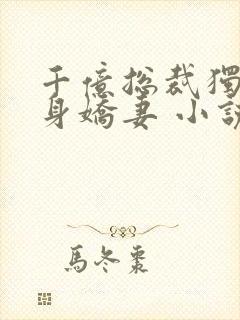 千億总裁獨
身嬌妻 小說
馬冬棗